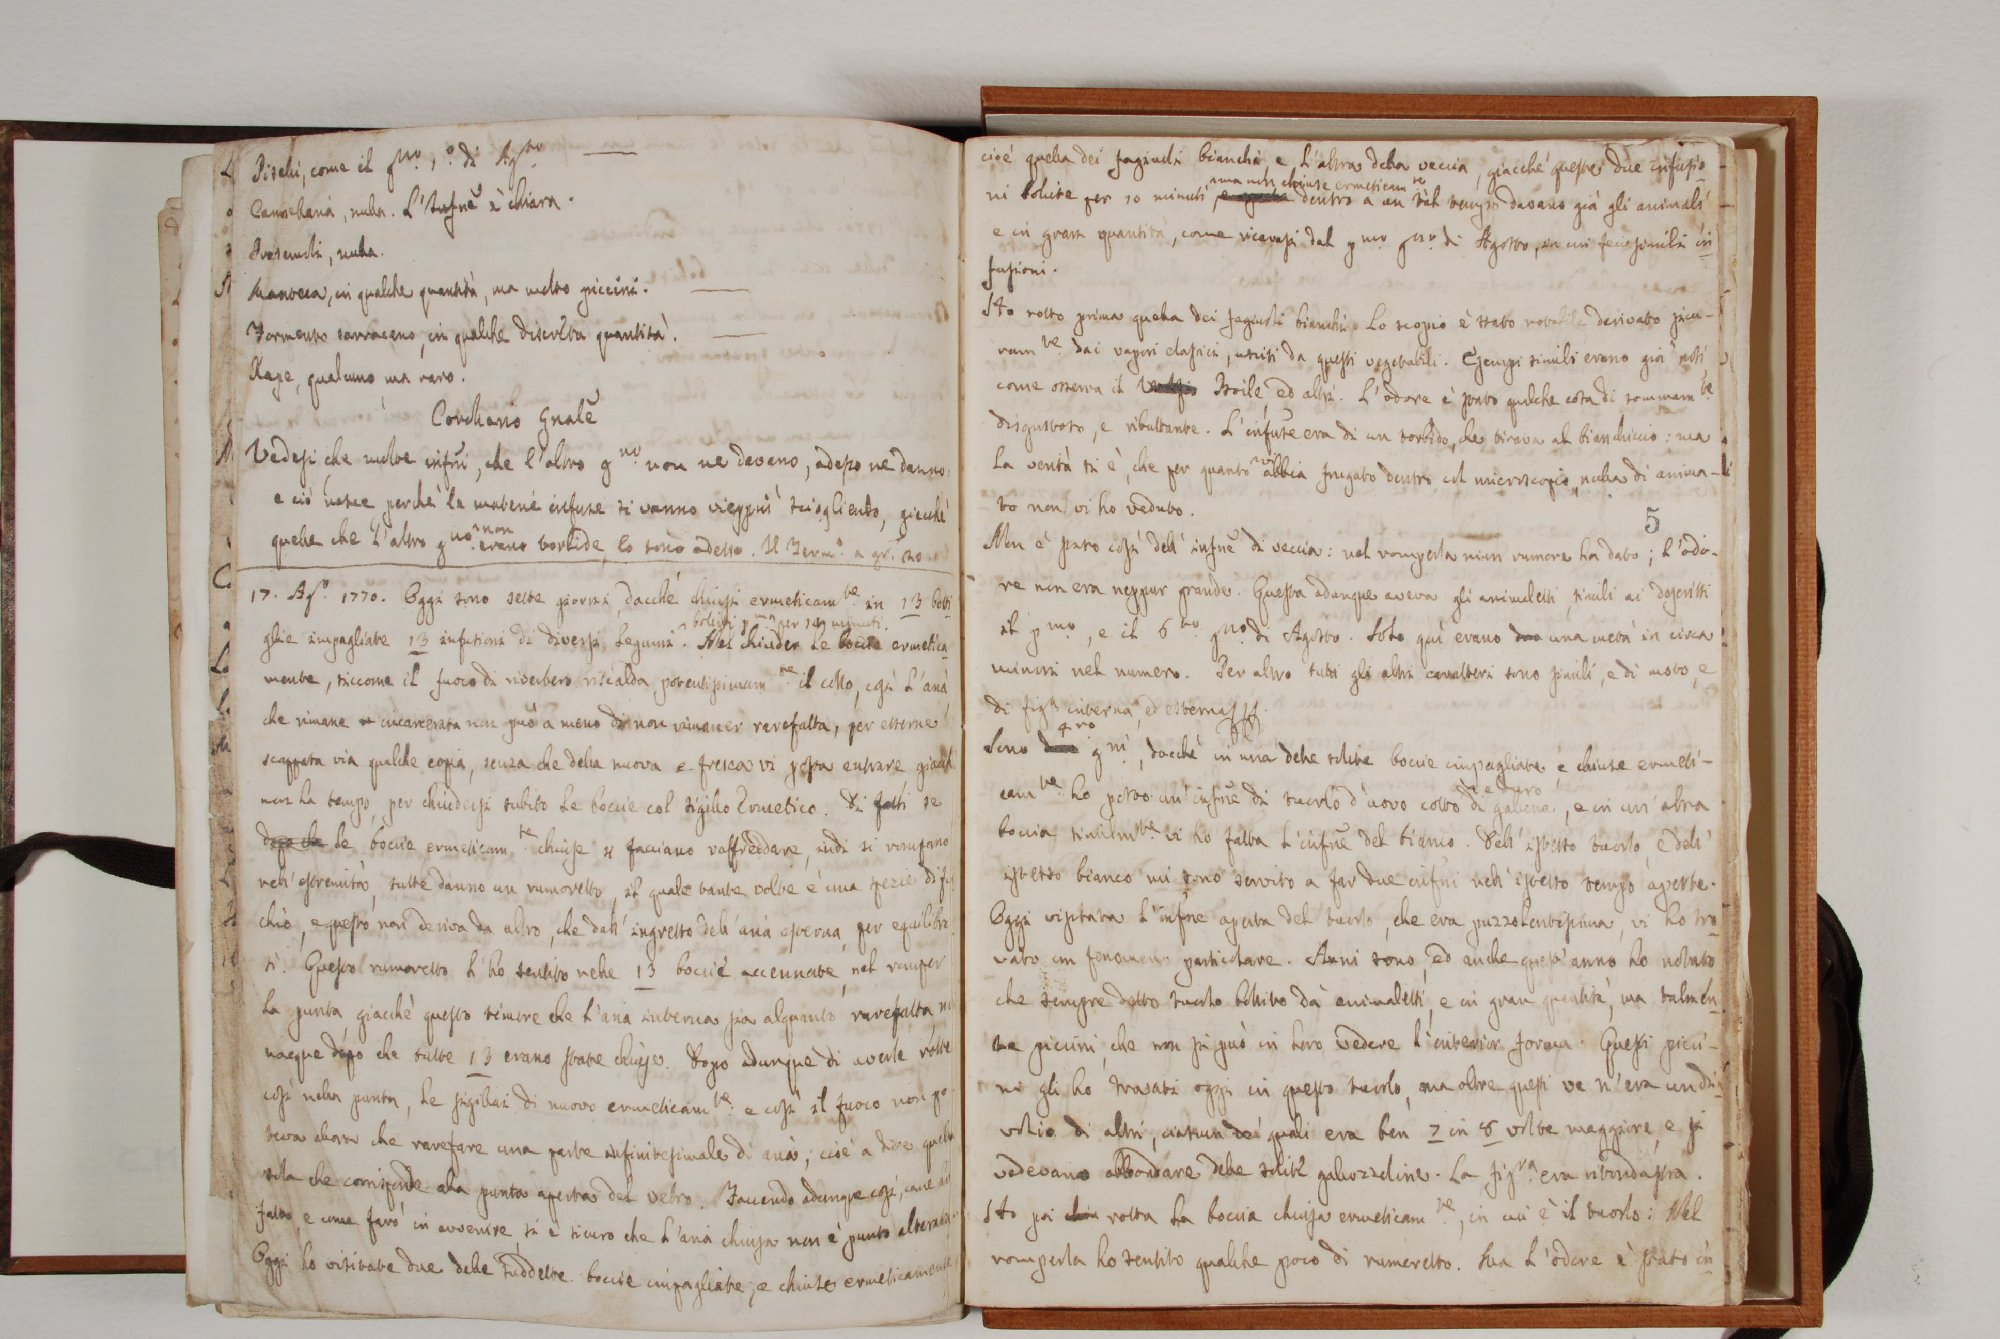 Piselli, come il gno 1.° di Agto
Cannellana, nulla. L'Infuñe è chiara.
nulla.
in qualche quantità, ma molto piccini.
Formento sarraceno, in qualche discreta quantità.
qualcuno, ma raro.
Corollario Gnale
Vedesi che molte infuni, che l'altro gno. non ne devano, adesso ne danno
e ciò nasce perchè le materie infuse si vanno vieppiù sciogliendo, giacchè
quelle che l'altro gno. non erano torbide, lo sono adesso. Il Term.° a gr. 20
17. Ag°. 1770. Oggi sono sette giorni, dacchè chiusi ermeticamte. in 13 botti
glie impagliate 13 infusioni di diversi legumi bolliti pma per 10 minuti. Nel chiuder le boccie ermetica
mente, siccome il fuoco di riverbero riscalda potentissimamte. il collo, così l'aria
che rimane incarcerata non può a meno di non rimaner rarefatta, per esserne
scappata via qualche copia, senza che della nuova e fresca vi possa entrare giacchè
non ha tempo, per chiudersi subito le boccie col sigillo Ermetico. Di fatti se
dopo che le boccie ermeticamte chiuse si facciano raffreddare, indi si rompano
nell'estremità, tutte danno un rumoretto, il quale tante volte è una spezie di fis
chio, e questo non deriva da altro, che dall'ingresso dell'aria esterna, per equilibrar
si. Questo rumoretto l'ho sentito nelle 13 boccie accennate, nel romper
la punta, giacchè questo timore che l'aria interna sia alquanto rarefatta, mi
nacque dopo che tutte 13 erano state chiuse. Dopo adunque di averle rotte
così nella punta, le sigillai di nuovo ermeticamte. e così il fuoco non po
teva allora che rarefare una parte infinitesimale di aria; cioè a dire quella
sola che corrisponde alla punta aperta del vetro. Facendo adunque così, come ho
fatto, e come farò in avvenire si è sicuro che l'aria chiusa non è punto alterata.
Oggi ho visitate due delle suddette boccie impagliate, e chiuse ermeticamente
cioè quella dei fagiuoli bianchi e l'altra della veccia, giacchè queste due infusio
ni bollite per 10 minuti, ma non chiuse ermeticamte dentro a un tal tempo davano già gli animali
e in gran quantità, come ricavasi dal gno di Agosto, in cui feci simili in
fusioni.
Ho rotto prima quella dei fagiuoli bianchi. Lo scopio è stato notabile derivato sicu-
ramte. dai vapori elastici, usciti da questi vegetabili. Esempi simili erano già noti
come osserva il Boile, ed altri. L'odore è stato qualche cosa di sommamte.
disgustoso, e ributtante. L'infuñe era di un torbido, che tirava al bianchiccio: ma
la verità si è, che per quanto vi abbia frugato dentro col microscopio, nulla di anima-
to non vi ho veduto.
5
Non è stato così dell'infuñe di veccia: nel romperla niun rumore ha dato; l'odo-
re non era neppur grande. Questa adunque aveva gli animaletti, simili ai descritti
il pmo, e il 6to gno. di Agosto. Solo qui erano una metà in circa
minori nel numero. Per altro tutti gli altri caratteri sono simili, e di moto, e
di figa interna, ed esterna.
Sono 4ro gni, dacchè in una delle solite boccie impagliate e chiuse ermeti-
camte. ho posto un'infuñe di tuorlo d'uovo cotto e duro di gallina, e in un'altra
boccia similmte. vi ho fatta l'infuñe del bianco. Dell'istesso tuorlo, e dell'
istesso bianco mi sono servito a far due infuni nell'istesso tempo aperte.
Oggi visitata l'infuñe aperta del tuorlo, che era puzzolentissima, vi ho tro
vato un fenomeno particolare. Anni sono, ed anche quest'anno ho notato
che sempre detto tuorlo bollito dà animaletti, e in gran quantità, ma talmen
te piccini, che non si può in loro vedere l'interior forma. Questi picci-
ni gli ho trovati oggi in questo tuorlo, ma oltre questi ve n'era un di
luvio di altri, ciascun dei quali era ben 7 in 8 volte maggiore, e si
vedevano abbondare delle solite gallozzoline. La figra era ritondastra.
Ho poi rotta la boccia chiusa ermeticamte, in cui è il tuorlo: Nel
romperla ho sentito qualche poco di rumoretto. Ma l'odore è stato in